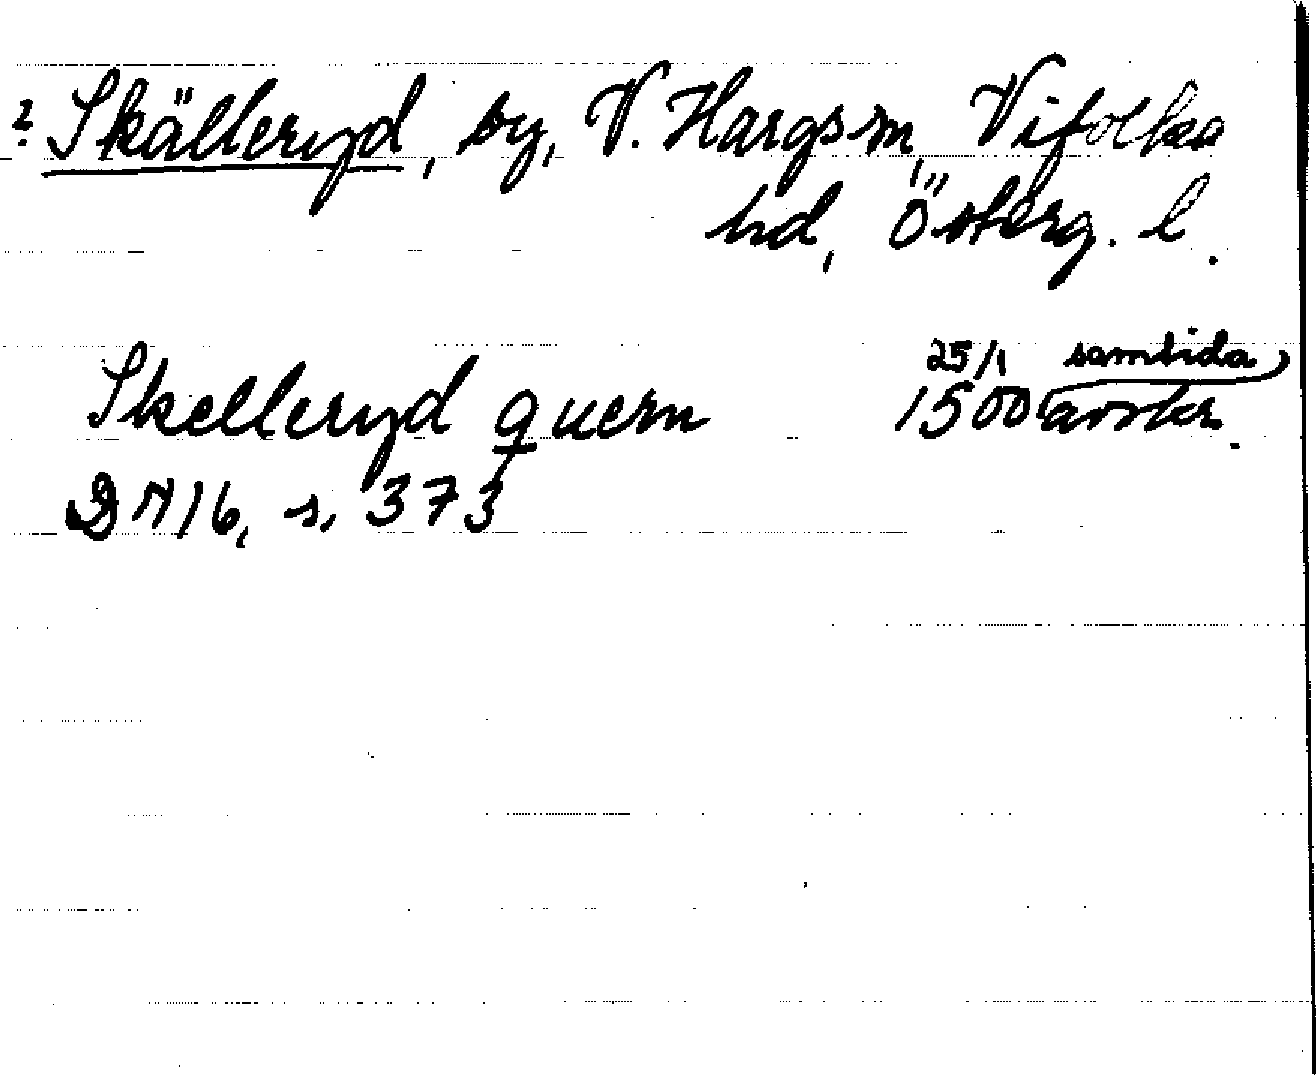 ? Skälleryd, by, V. Hargs sn, Vifolka
hd, Österg. l.
Skelleryd quern 25/1 1500 samtida avskr.
D N 16, s. 373